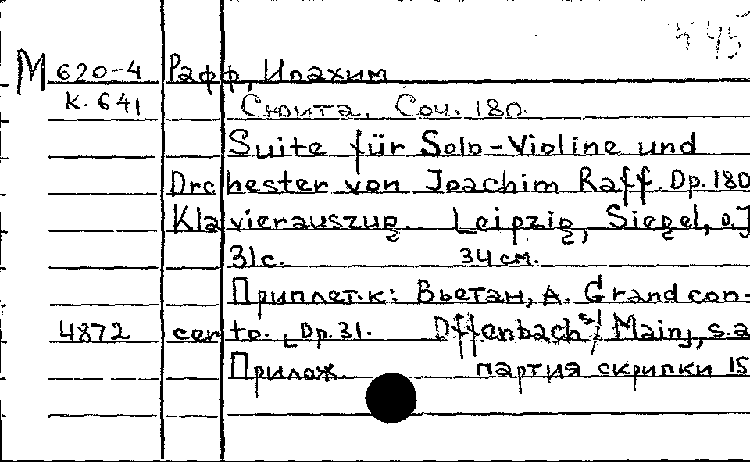 М 620-4 Рафф, Иоахим
к. 641 Сюита, Соч. 180.
Suite für Solo-Violine und
Orchester von Joachim Raff. Op. 180
Klavierauszug. Leipzig, Siegel, o.J
31с. 34 см.
Приплет. к: Вьетан, А. Grand con-
4872 certo. Op. 31. Offenbach s/Main, s.a
Прилож. партия скрипки 15